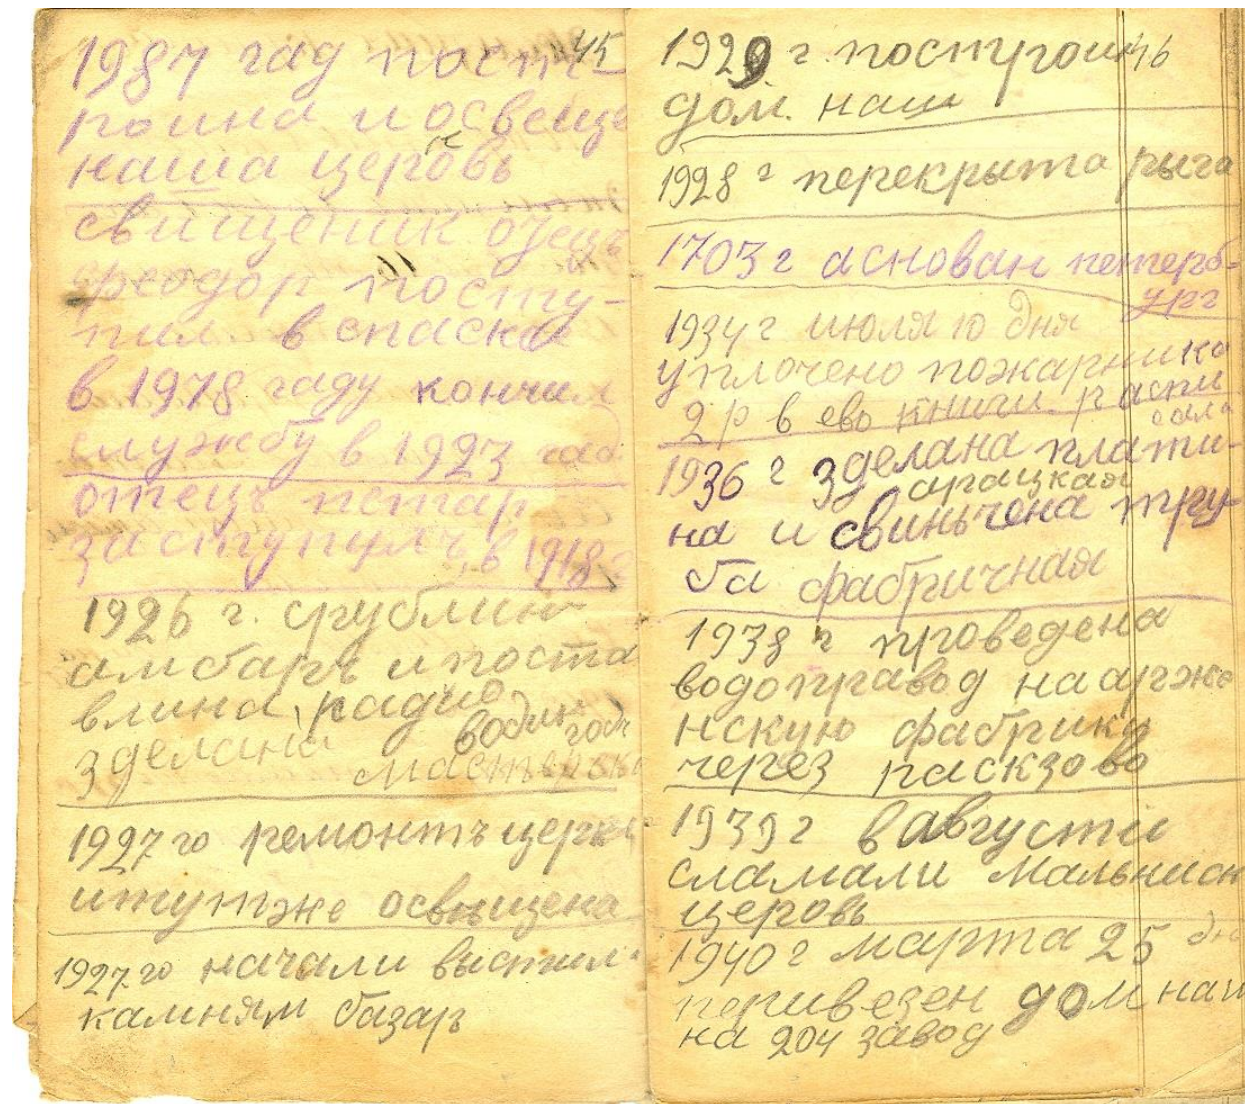 45
1987 гад пост-
роина и освеще
наша церковь
свищеник отецъ
феодор посту-
пил в спаское
в 1978 гаду кончил
службу в 1923 гад
отецъ петар
заступулъ в 1918 г
1926 г. срублин
амбаръ и поста
влина, радио
зделана водин годъ
мастерска
1927 го ремонтъ церкв
итутже освищена
1927 го начали выстил
камням базаръ
46
1929 г построин
дом. наш
1928 г перекрыта рыга
1703 г аснован петерб-
ург
1934 г июля 10 дня
уплочено пожарника
2 р в ево книги распи
сала
1936 г зделана плати-
арацкая
на и свиньчена тру-
ба фабричная
1938 г проведена
водоправод на арже
нскую фабрику
через раскзово
1939 г в августи
сламали Мальнисн
церовь
1940 г марта 25 дня
перивезен дом наш
на 204 завод